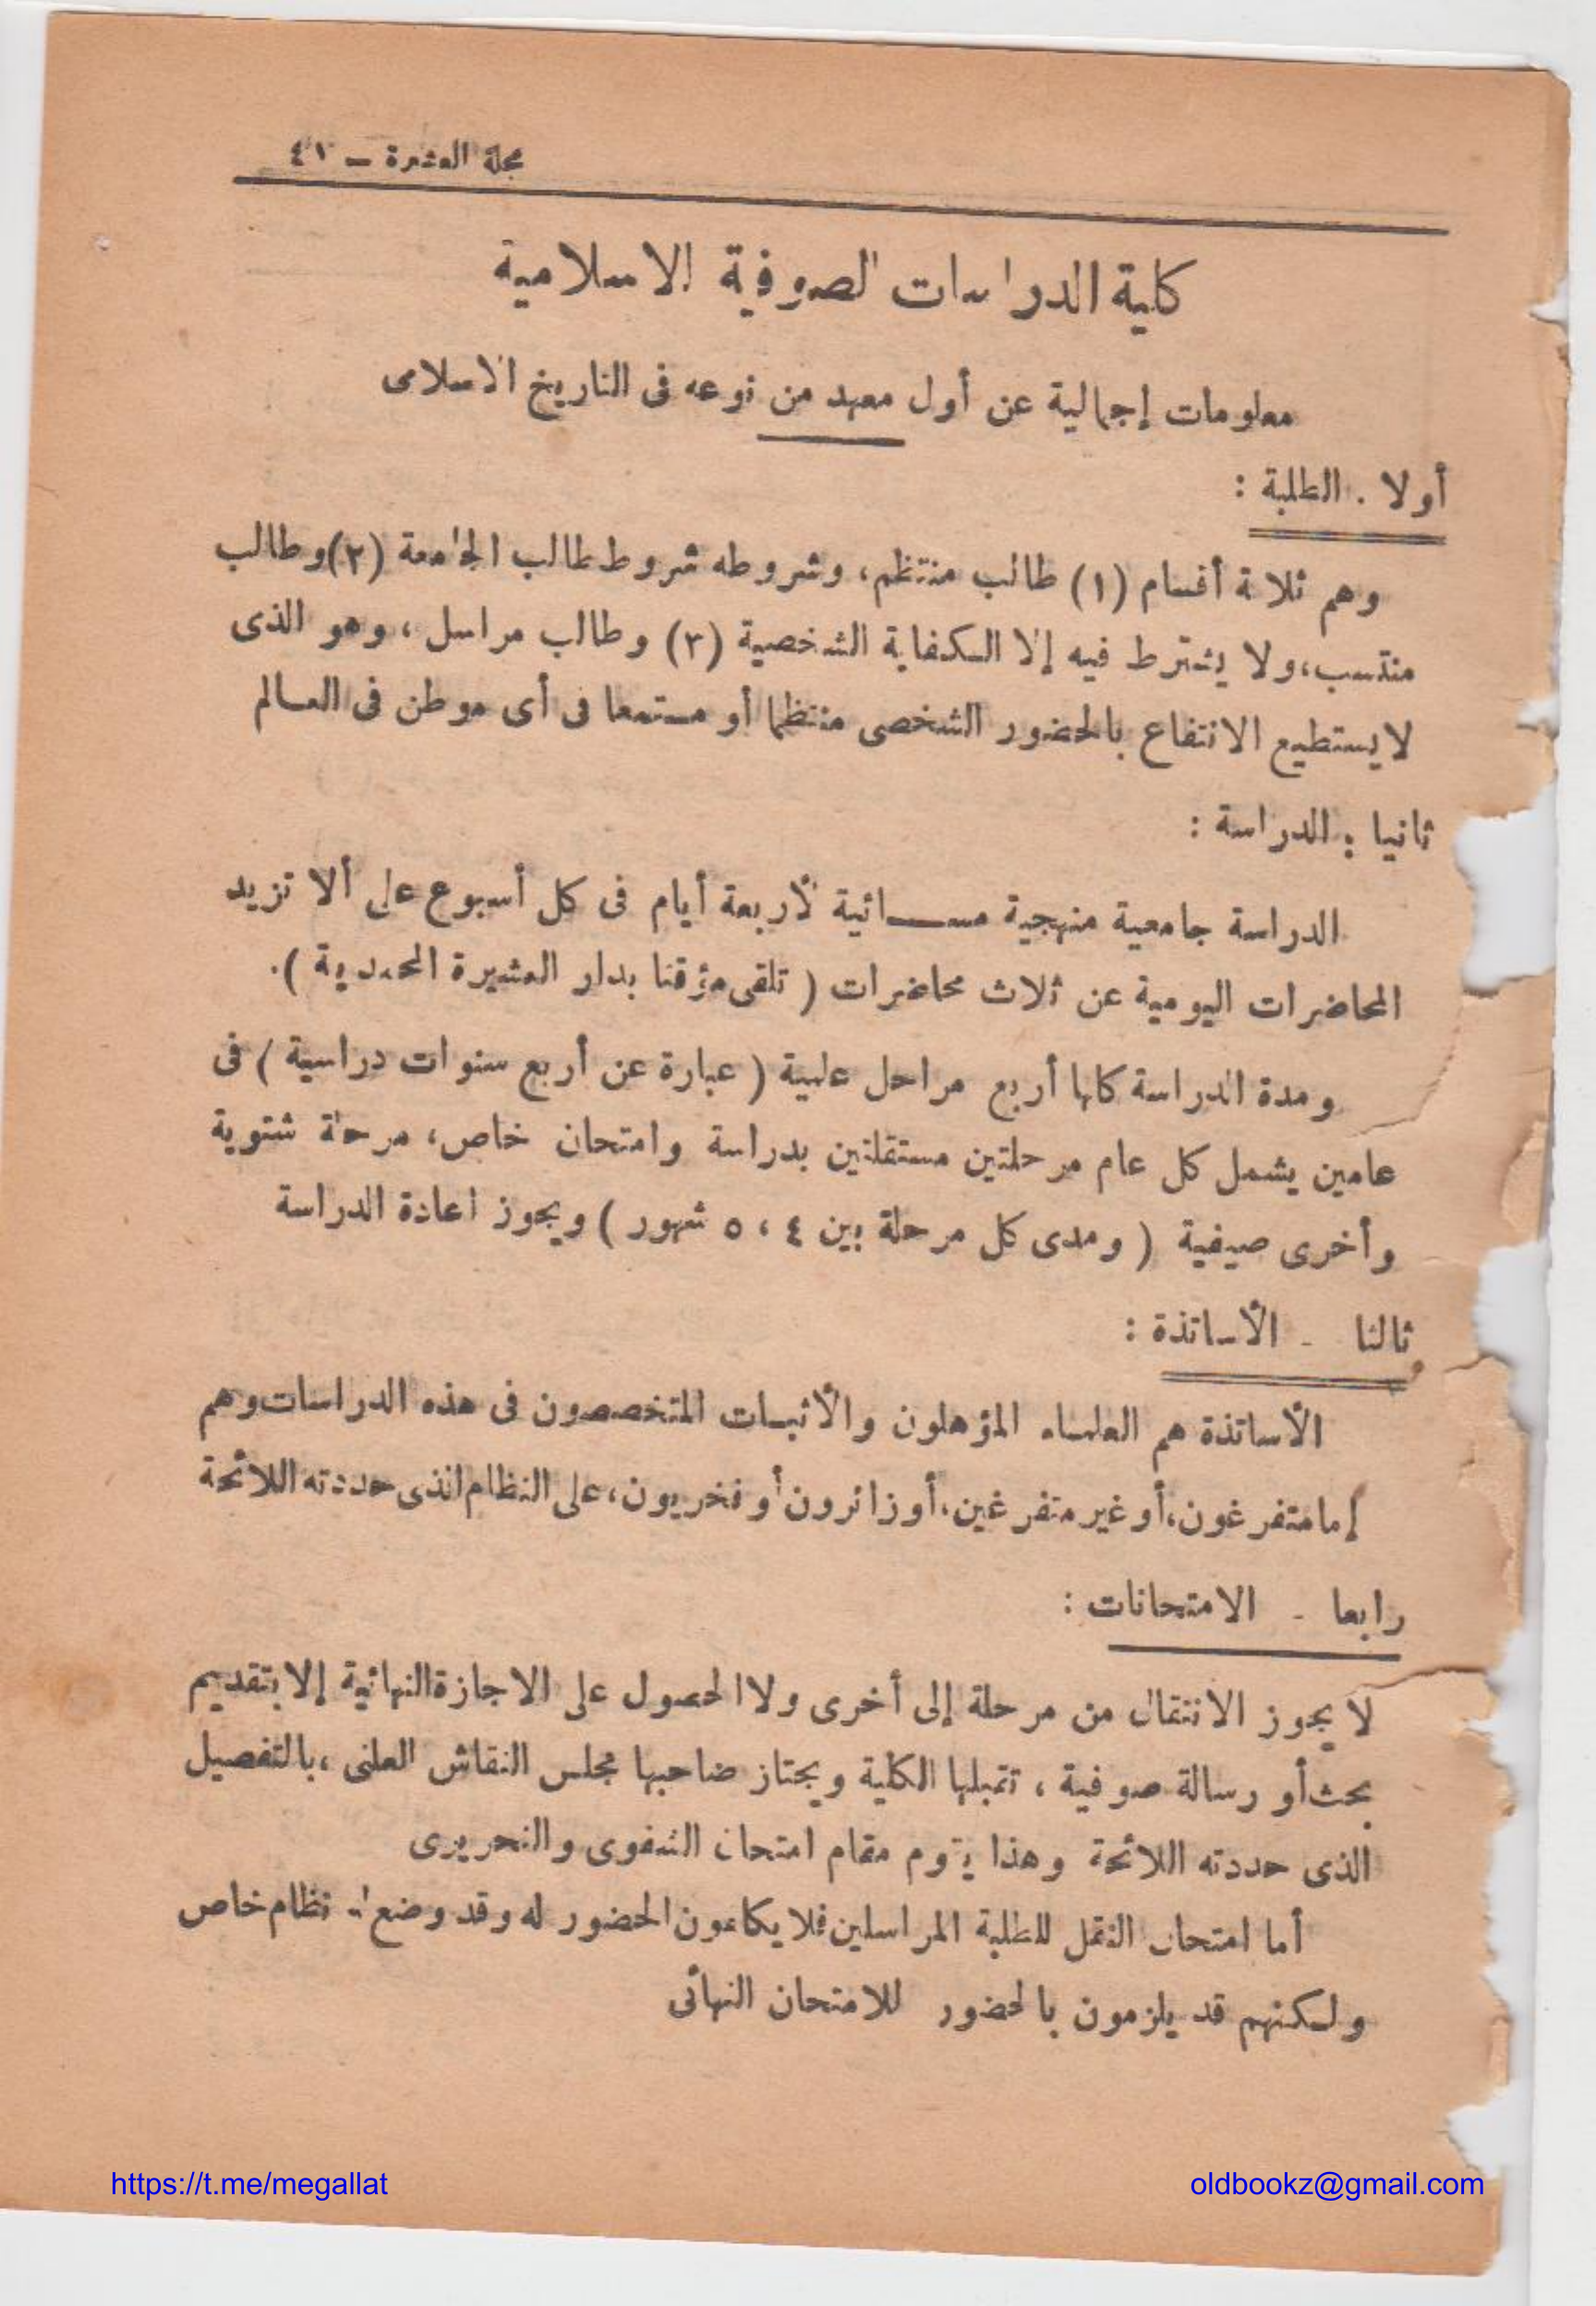 مجلة العشيرة – ٤١
كلية الدراسات الصوفية الاسلامية
معلومات إجمالية عن أول معهد من نوعه فى التاريخ الاسلامى
أولا . الطلبة :
وهم ثلاثة أقسام (١) طالب منتظم، وشروطه شروط طالب الجامعة (٢) وطالب
منتسب، ولا يشترط فيه إلا الكفاية الشخصية (٣) وطالب مراسل ، وهو الذى
لا يستطيع الانتفاع بالحضور الشخصى منتظما أو مستمعا فى أى موطن فى العالم
ثانيا : الدراسة :
الدراسة جامعية منهجية مسائية لأربعة أيام فى كل أسبوع على ألا تزيد
المحاضرات اليومية عن ثلاث محاضرات ( تلقى مؤقتا بدار العشيرة المحمدية ).
ومدة الدراسة كلها أربع مراحل علمية ( عبارة عن أربع سنوات دراسية ) فى
عامين يشمل كل عام مرحلتين مستقلتين بدراسة وامتحان خاص، مرحلة شتوية
وأخرى صيفية ( ومدى كل مرحلة بين ٤ ، ٥ شهور ) ويجوز اعادة الدراسة
ثالثا - الأساتذة :
الأساتذة هم العلماء المؤهلون والأثبات المتخصصون فى هذه الدراسات وهم
إما متفرغون، أو غير متفرغين، أو زائرون أو فخريون، على النظام الذى حددته اللائحة
رابعا - الامتحانات :
لا يجوز الانتقال من مرحلة إلى أخرى ولا الحصول على الاجازة النهائية إلا بتقديم
بحث أو رسالة صوفية ، تقبلها الكلية ويجتاز صاحبها مجلس النقاش العلنى ، بالتفصيل
الذى حددته اللائحة وهذا يقوم مقام امتحان الشفوى والتحريرى
أما امتحان النقل للطلبة المراسلين فلا يكلفون الحضور له وقد وضع له نظام خاص
ولكنهم قد يلزمون بالحضور للامتحان النهائى
https://t.me/megallat
oldbookz@gmail.com